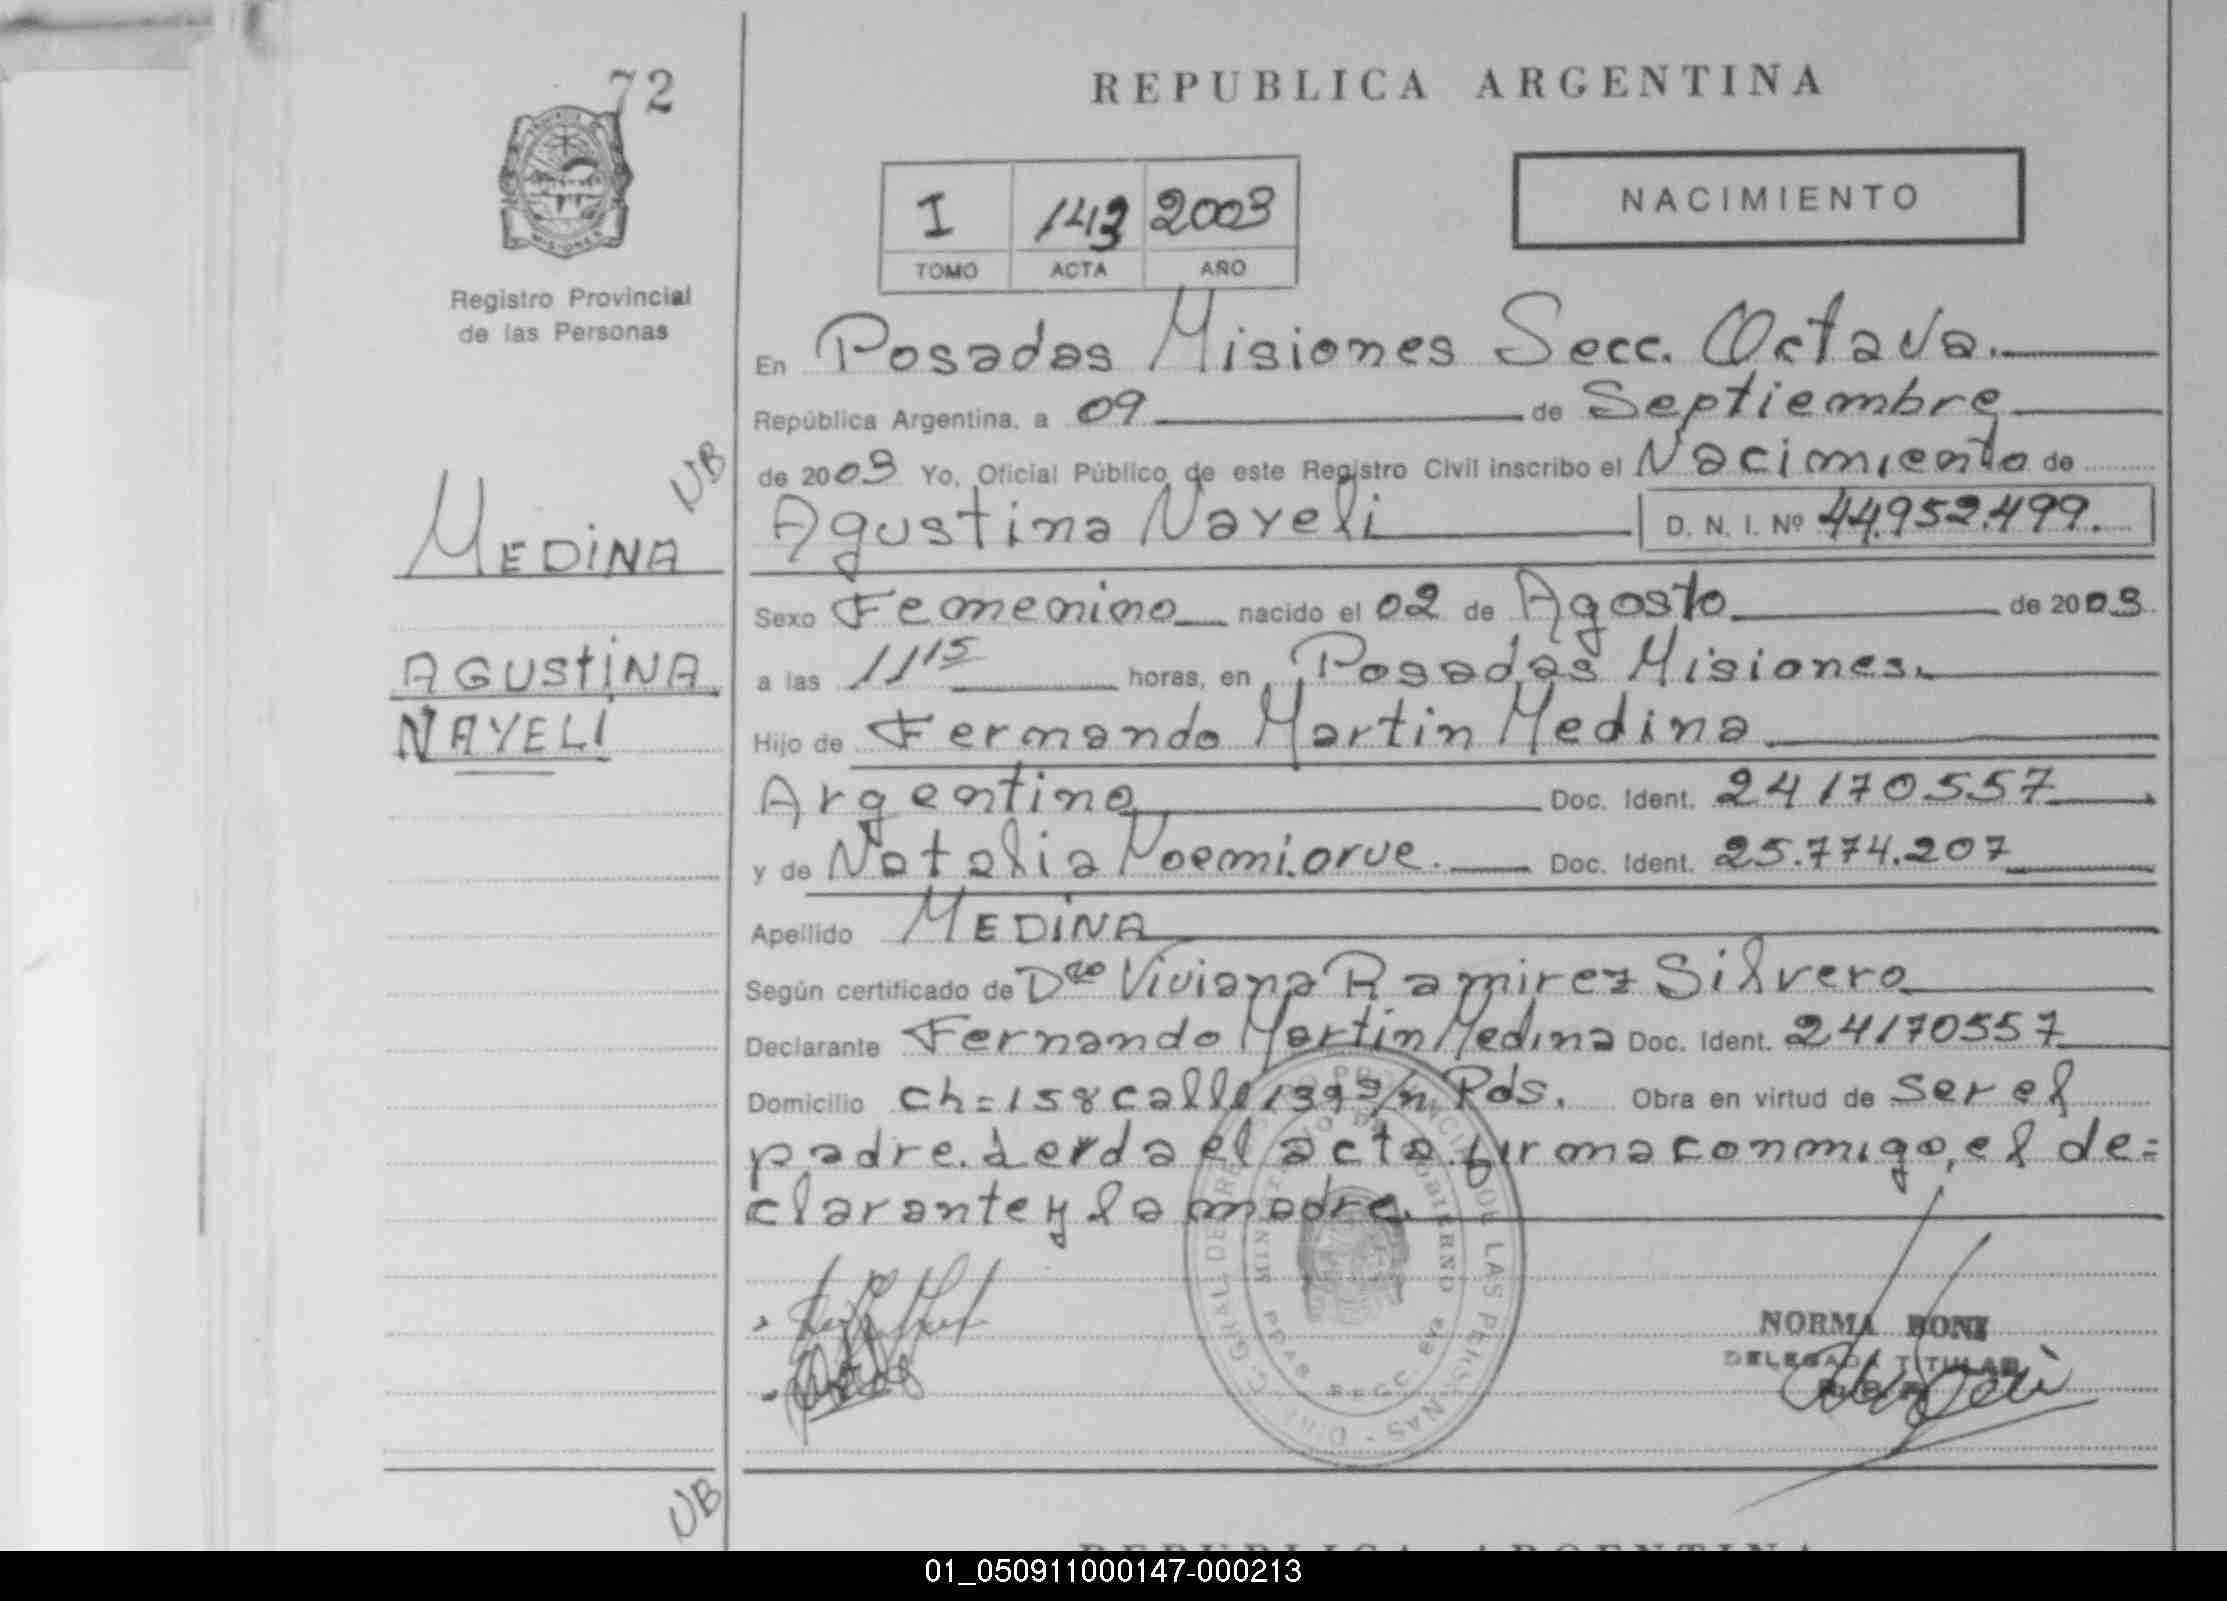 72
REPUBLICA ARGENTINA
NACIMIENTO
I 143 2003
TOMO ACTA AÑO
MISIONES
Registro Provincial
de las Personas
En Posadas Misiones Secc. Octava.
República Argentina, a 09 de Septiembre
de 2003 Yo, Oficial Público de este Registro Civil inscribo el Nacimiento de
NB
MEDINA
Agustina Nayeli D. N. I. Nº 44.952.499.
Sexo Femenino nacido el 02 de Agosto de 2003.
AGUSTINA
NAYELI
a las 11 15 horas, en Posadas Misiones.
Hijo de Fernando Martin Medina
Argentino Doc. Ident. 24170557
y de Natalia Noemi orue. Doc. Ident. 25.774.207
Apellido MEDINA
Según certificado de Dra Viviana Ramirez Silvero
Declarante Fernando Martin Medina Doc. Ident. 24170557
Domicilio ch=158 calle 139 s/n Pds. Obra en virtud de ser el
padre. Leida el acta firma conmigo, el de=
clarante y la madre.
NORMA BONI
DELEGADA TITULAR
NB
REPUBLICA ARGENTINA
01_050911000147-000213